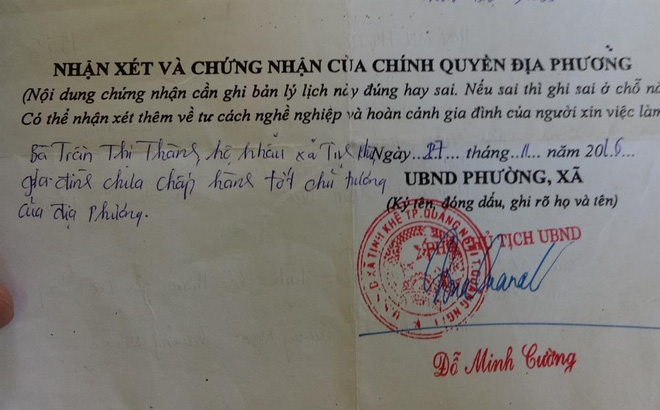 NHẬN XÉT VÀ CHỨNG NHẬN CỦA CHÍNH QUYỀN ĐỊA PHƯƠNG
(Nội dung chứng nhận cần ghi bản lý lịch này đúng hay sai. Nếu sai thì ghi sai ở chỗ nà
Có thể nhận xét thêm về tư cách nghề nghiệp và hoàn cảnh gia đình của người xin việc làm
Bà Trần Thị Thành hộ khẩu xã Tịnh Khê
gia đình chưa chấp hành tốt chủ trương
của địa phương.
Ngày...27... tháng...11... năm 2016...
UBND PHƯỜNG, XÃ
(Ký tên, đóng dấu, ghi rõ họ và tên)
PHÓ CHỦ TỊCH UBND
U.B.N.D XÃ TỊNH KHÊ TP.QUẢNG NGÃI T.QUẢNG NGÃI
Đỗ Minh Cường